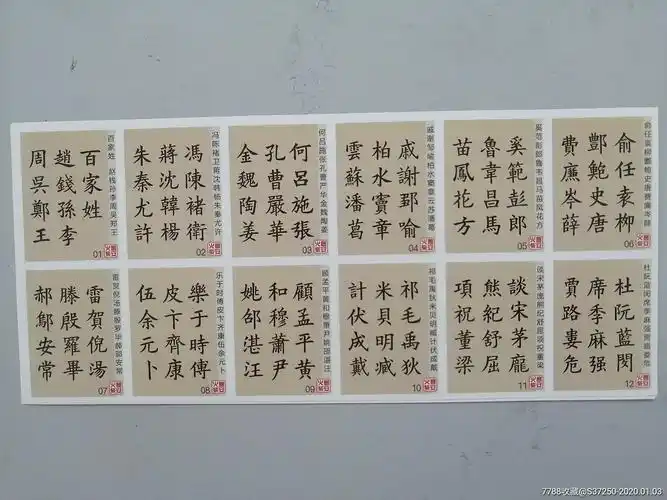 百家姓
趙錢孫李
周吳鄭王
百家姓 赵钱孙李周吴郑王
01
馮陳褚衛
蔣沈韓楊
朱秦尤許
冯陈褚卫蒋沈韩杨朱秦尤许
02
何呂施張
孔曹嚴華
金魏陶姜
何吕施张孔曹严华金魏陶姜
03
戚謝邹喻
柏水竇章
雲蘇潘葛
戚谢邹喻柏水窦章云苏潘葛
04
奚範彭郎
魯韋昌馬
苗鳳花方
奚范彭郎鲁韦昌马苗凤花方
05
俞任袁柳
酆鮑史唐
費廉岑薛
俞任袁柳酆鲍史唐费廉岑薛
06
雷賀倪湯
滕殷羅畢
郝鄔安常
雷贺倪汤滕殷罗毕郝邬安常
07
樂于時傅
皮卞齊康
伍余元卜
乐于时傅皮卞齐康伍余元卜
08
顧孟平黄
和穆蕭尹
姚邵湛汪
顾孟平黄和穆萧尹姚邵湛汪
09
祁毛禹狄
米貝明臧
計伏成戴
祁毛禹狄米贝明臧计伏成戴
10
談宋茅龐
熊紀舒屈
項祝董梁
谈宋茅庞熊纪舒屈项祝董梁
11
杜阮藍閔
席季麻强
賈路婁危
杜阮蓝闵席季麻强贾路娄危
12
7788收藏@S37250-2020.01.03